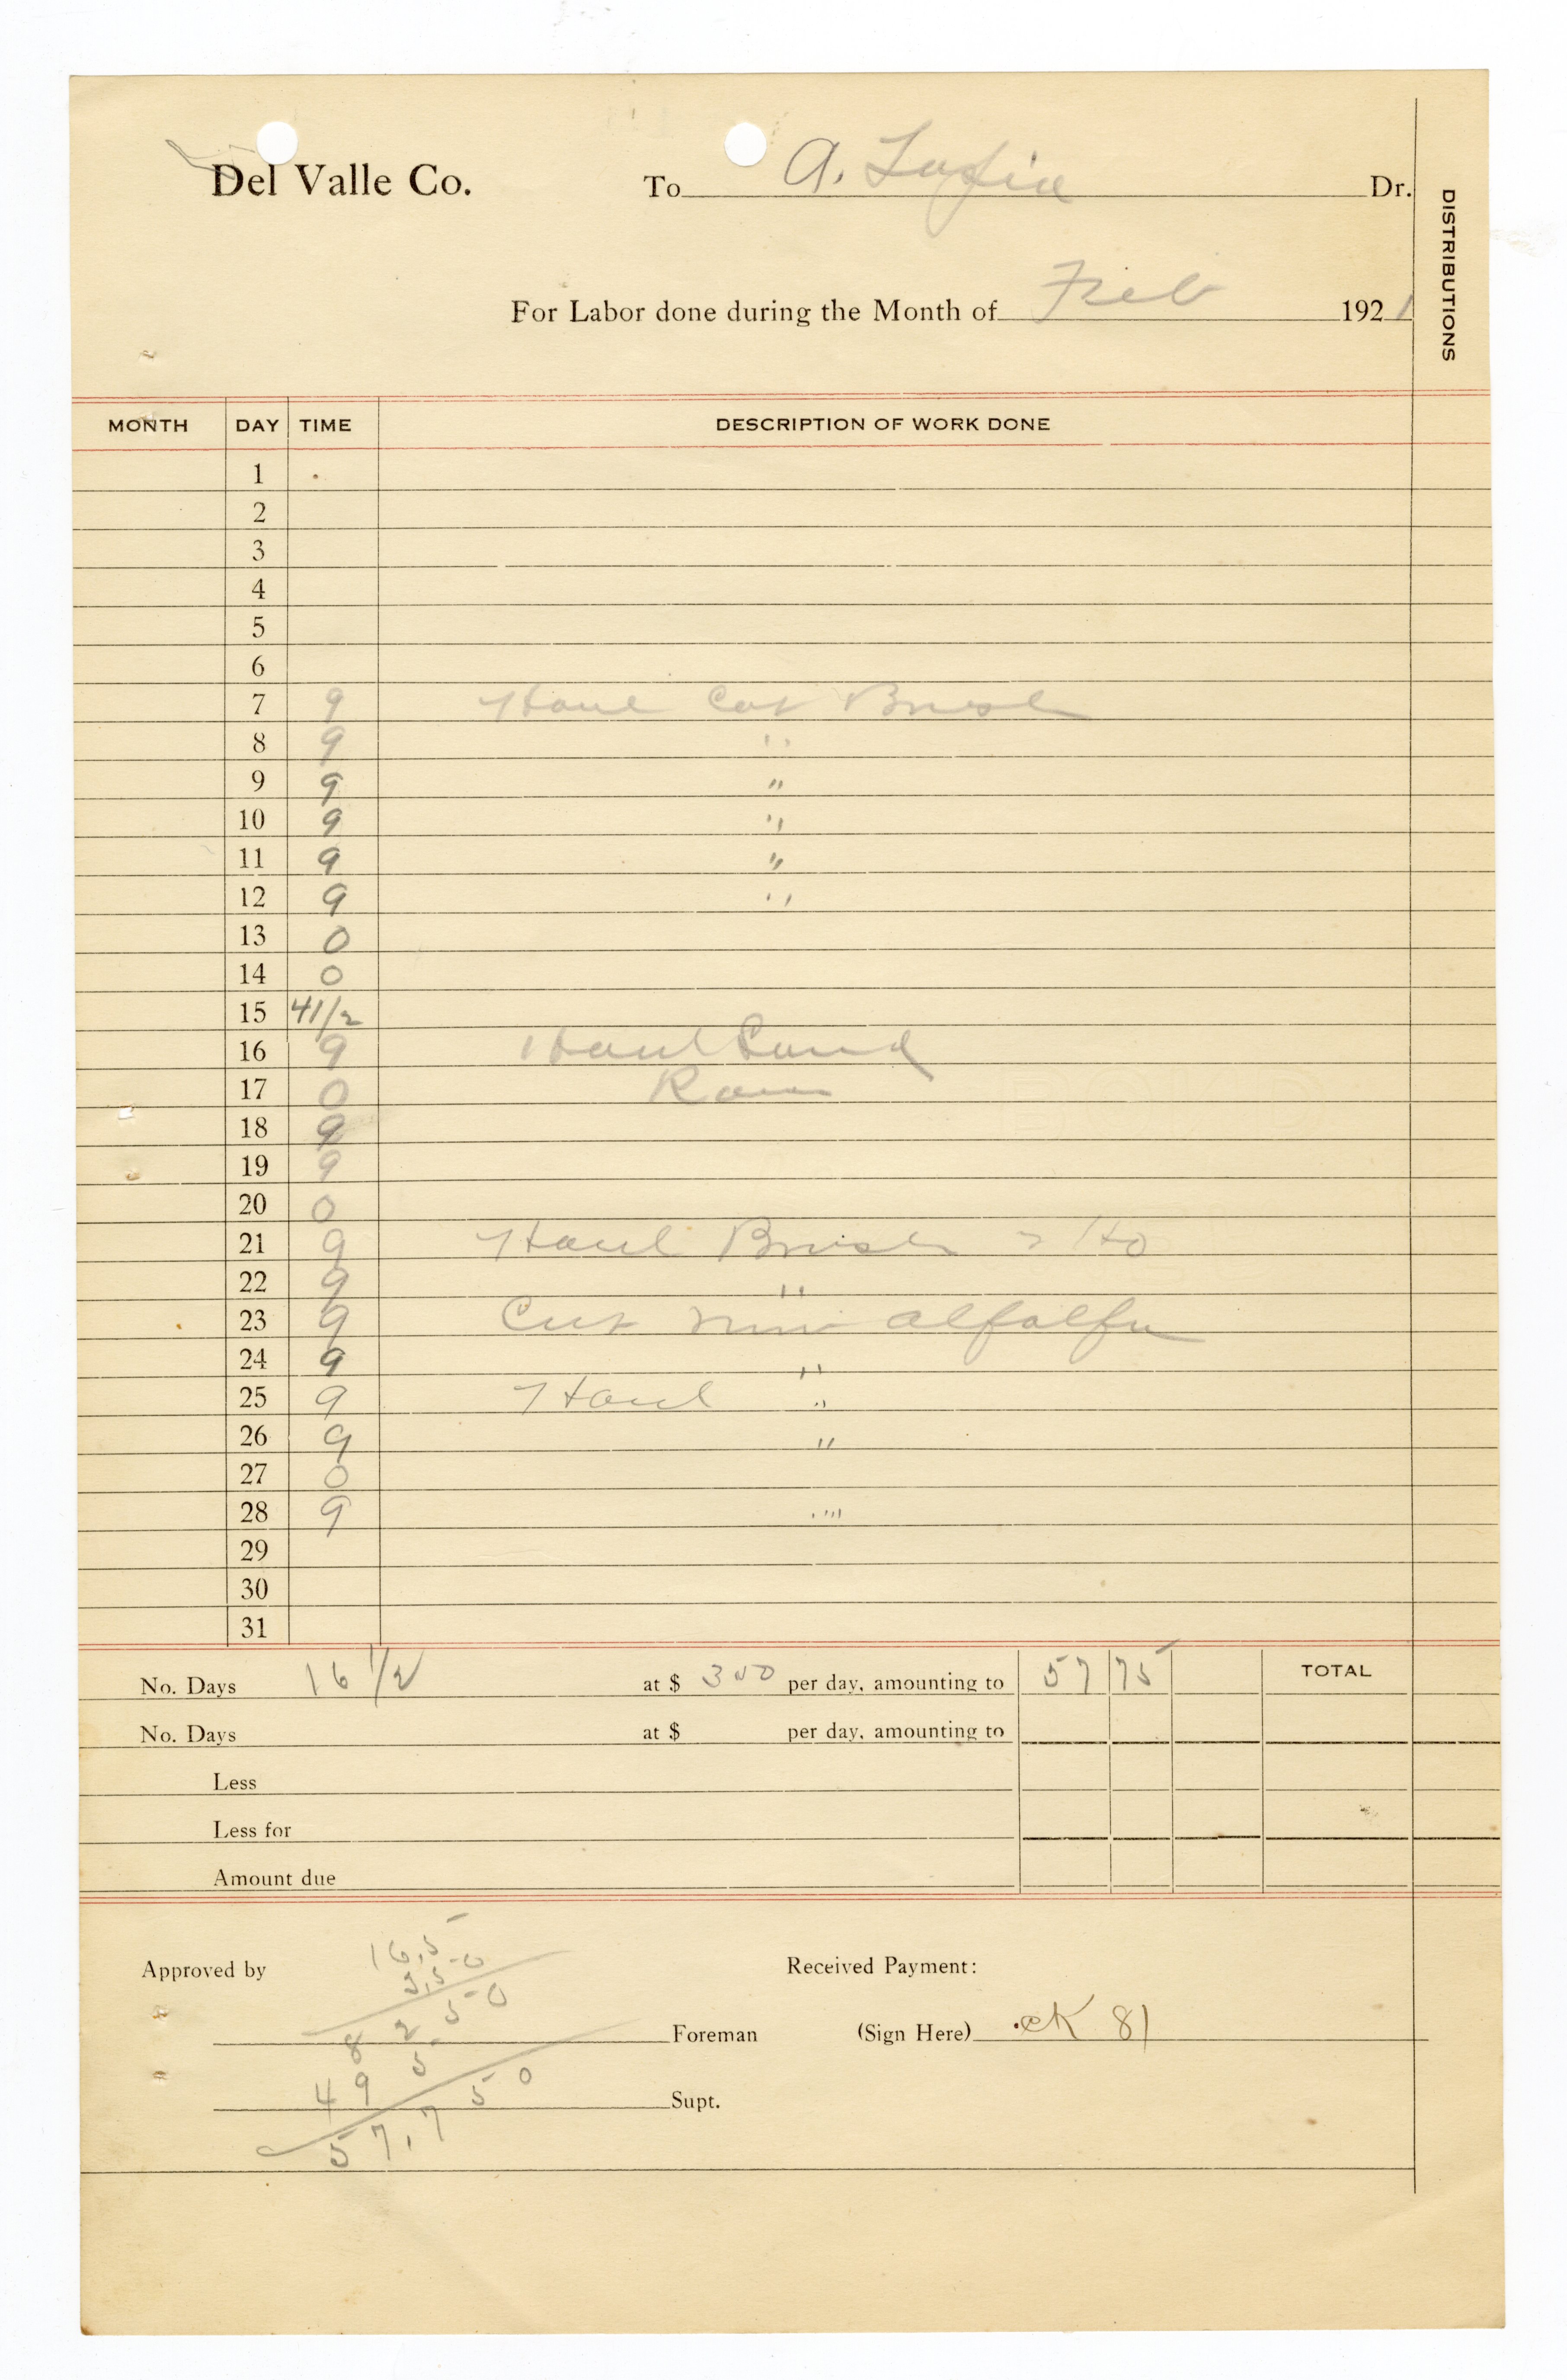 Del Valle Co. To A. Dr.
DISTRIBUTIONS
For Labor done during the Month of Feb 1921
MONTH DAY TIME DESCRIPTION OF WORK DONE
1
2
3
4
5
6
7 9 Haul Cut Brush
8 9 "
9 9 "
10 9 "
11 9 "
12 9 "
13 0
14 0
15 4 1/2
16 9 Haul Sand
17 0 Rain
18 9
19 9
20 0
21 9 Haul Brush
22 9 "
23 9 Cut alfalfa
24 9 "
25 9 Haul "
26 9 "
27 0
28 9 "
29
30
31
No. Days 16 1/2 at $ per day, amounting to 57 75 TOTAL
No. Days at $ per day, amounting to
Less
Less for
Amount due
16.5
3.50
8 2.50
49 5
57.750
Approved by Received Payment:
Foreman (Sign Here) ck 81
Supt.